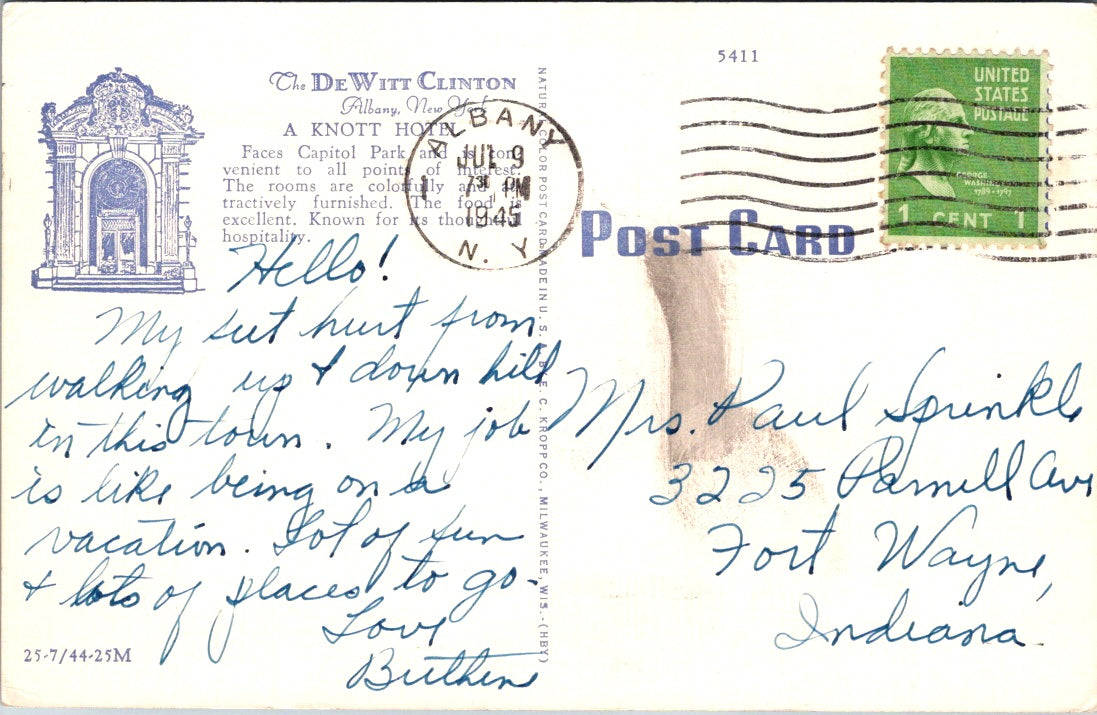 5411
The DEWITT CLINTON
Albany, New York
A KNOTT HOTEL
Faces Capitol Park and is con-
venient to all points of interest.
The rooms are colorfully and at-
tractively furnished. The food is
excellent. Known for its thoughtful
hospitality.
ALBANY
JUL 9
730 PM
1945
N. Y.
UNITED
STATES
POSTAGE
GEORGE
WASHINGTON
1789-1797
1 CENT 1
POST CARD
Hello!
My feet hurt from
walking up & down hill
in this town. My job
is like being on a
vacation. Lot of fun
& lots of places to go.
Love
Mrs. Paul Sprinkle
3225 Parnell Ave
Fort Wayne,
Indiana.
25-7/44-25M
COLOR POST CARD MADE IN U. S. A. BY E. C. KROPP CO., MILWAUKEE, WIS.-(HBY)